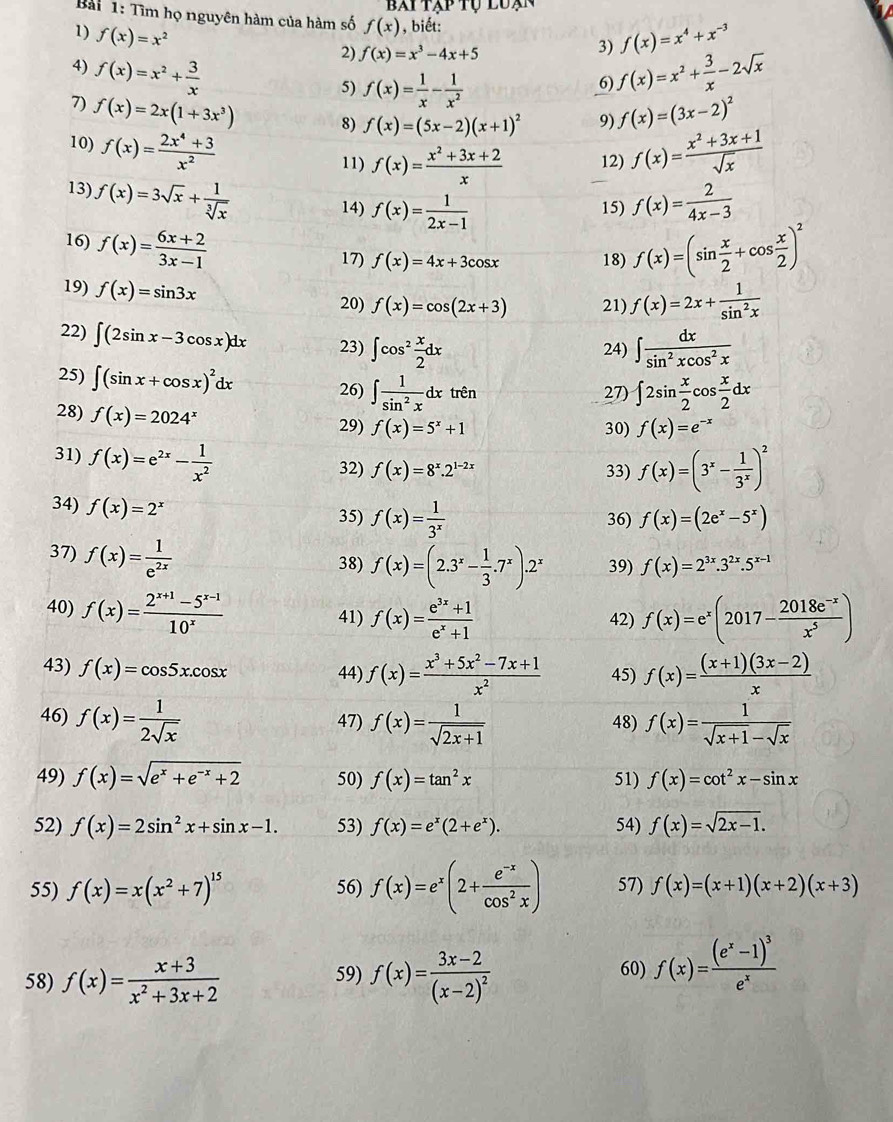 BÀI TẬP TỰ LUẬN
Bài 1: Tìm họ nguyên hàm của hàm số f(x), biết:
1) f(x)=x² 2) f(x)=x³−4x+5 3) f(x)=x⁴+x⁻³
4) f(x)=x²+3/x 5) f(x)=1/x−1/x² 6) f(x)=x²+3/x−2√x
7) f(x)=2x(1+3x³) 8) f(x)=(5x−2)(x+1)² 9) f(x)=(3x−2)²
10) f(x)=(2x⁴+3)/x² 11) f(x)=(x²+3x+2)/x 12) f(x)=(x²+3x+1)/√x
13) f(x)=3√x+1/∛x 14) f(x)=1/(2x−1) 15) f(x)=2/(4x−3)
16) f(x)=(6x+2)/(3x−1) 17) f(x)=4x+3cosx 18) f(x)=(sin x/2+cos x/2)²
19) f(x)=sin3x 20) f(x)=cos(2x+3) 21) f(x)=2x+1/sin²x
22) ∫(2sin x−3cos x)dx 23) ∫cos² x/2 dx 24) ∫dx/(sin²xcos²x)
25) ∫(sin x+cos x)²dx 26) ∫1/sin²x dx trên 27) ∫2sin x/2 cos x/2 dx
28) f(x)=2024ˣ 29) f(x)=5ˣ+1 30) f(x)=e⁻ˣ
31) f(x)=e²ˣ−1/x² 32) f(x)=8ˣ.2¹⁻²ˣ 33) f(x)=(3ˣ−1/3ˣ)²
34) f(x)=2ˣ 35) f(x)=1/3ˣ 36) f(x)=(2eˣ−5ˣ)
37) f(x)=1/e²ˣ 38) f(x)=(2.3ˣ−1/3.7ˣ).2ˣ 39) f(x)=2³ˣ.3²ˣ.5ˣ⁻¹
40) f(x)=(2ˣ⁺¹−5ˣ⁻¹)/10ˣ 41) f(x)=(e³ˣ+1)/(eˣ+1) 42) f(x)=eˣ(2017−2018e⁻ˣ/x⁵)
43) f(x)=cos5x.cosx 44) f(x)=(x³+5x²−7x+1)/x² 45) f(x)=(x+1)(3x−2)/x
46) f(x)=1/(2√x) 47) f(x)=1/√(2x+1) 48) f(x)=1/(√(x+1)−√x)
49) f(x)=√(eˣ+e⁻ˣ+2) 50) f(x)=tan²x 51) f(x)=cot²x−sin x
52) f(x)=2sin²x+sin x−1. 53) f(x)=eˣ(2+eˣ). 54) f(x)=√(2x−1).
55) f(x)=x(x²+7)¹⁵ 56) f(x)=eˣ(2+e⁻ˣ/cos²x) 57) f(x)=(x+1)(x+2)(x+3)
58) f(x)=(x+3)/(x²+3x+2) 59) f(x)=(3x−2)/(x−2)² 60) f(x)=(eˣ−1)³/eˣ